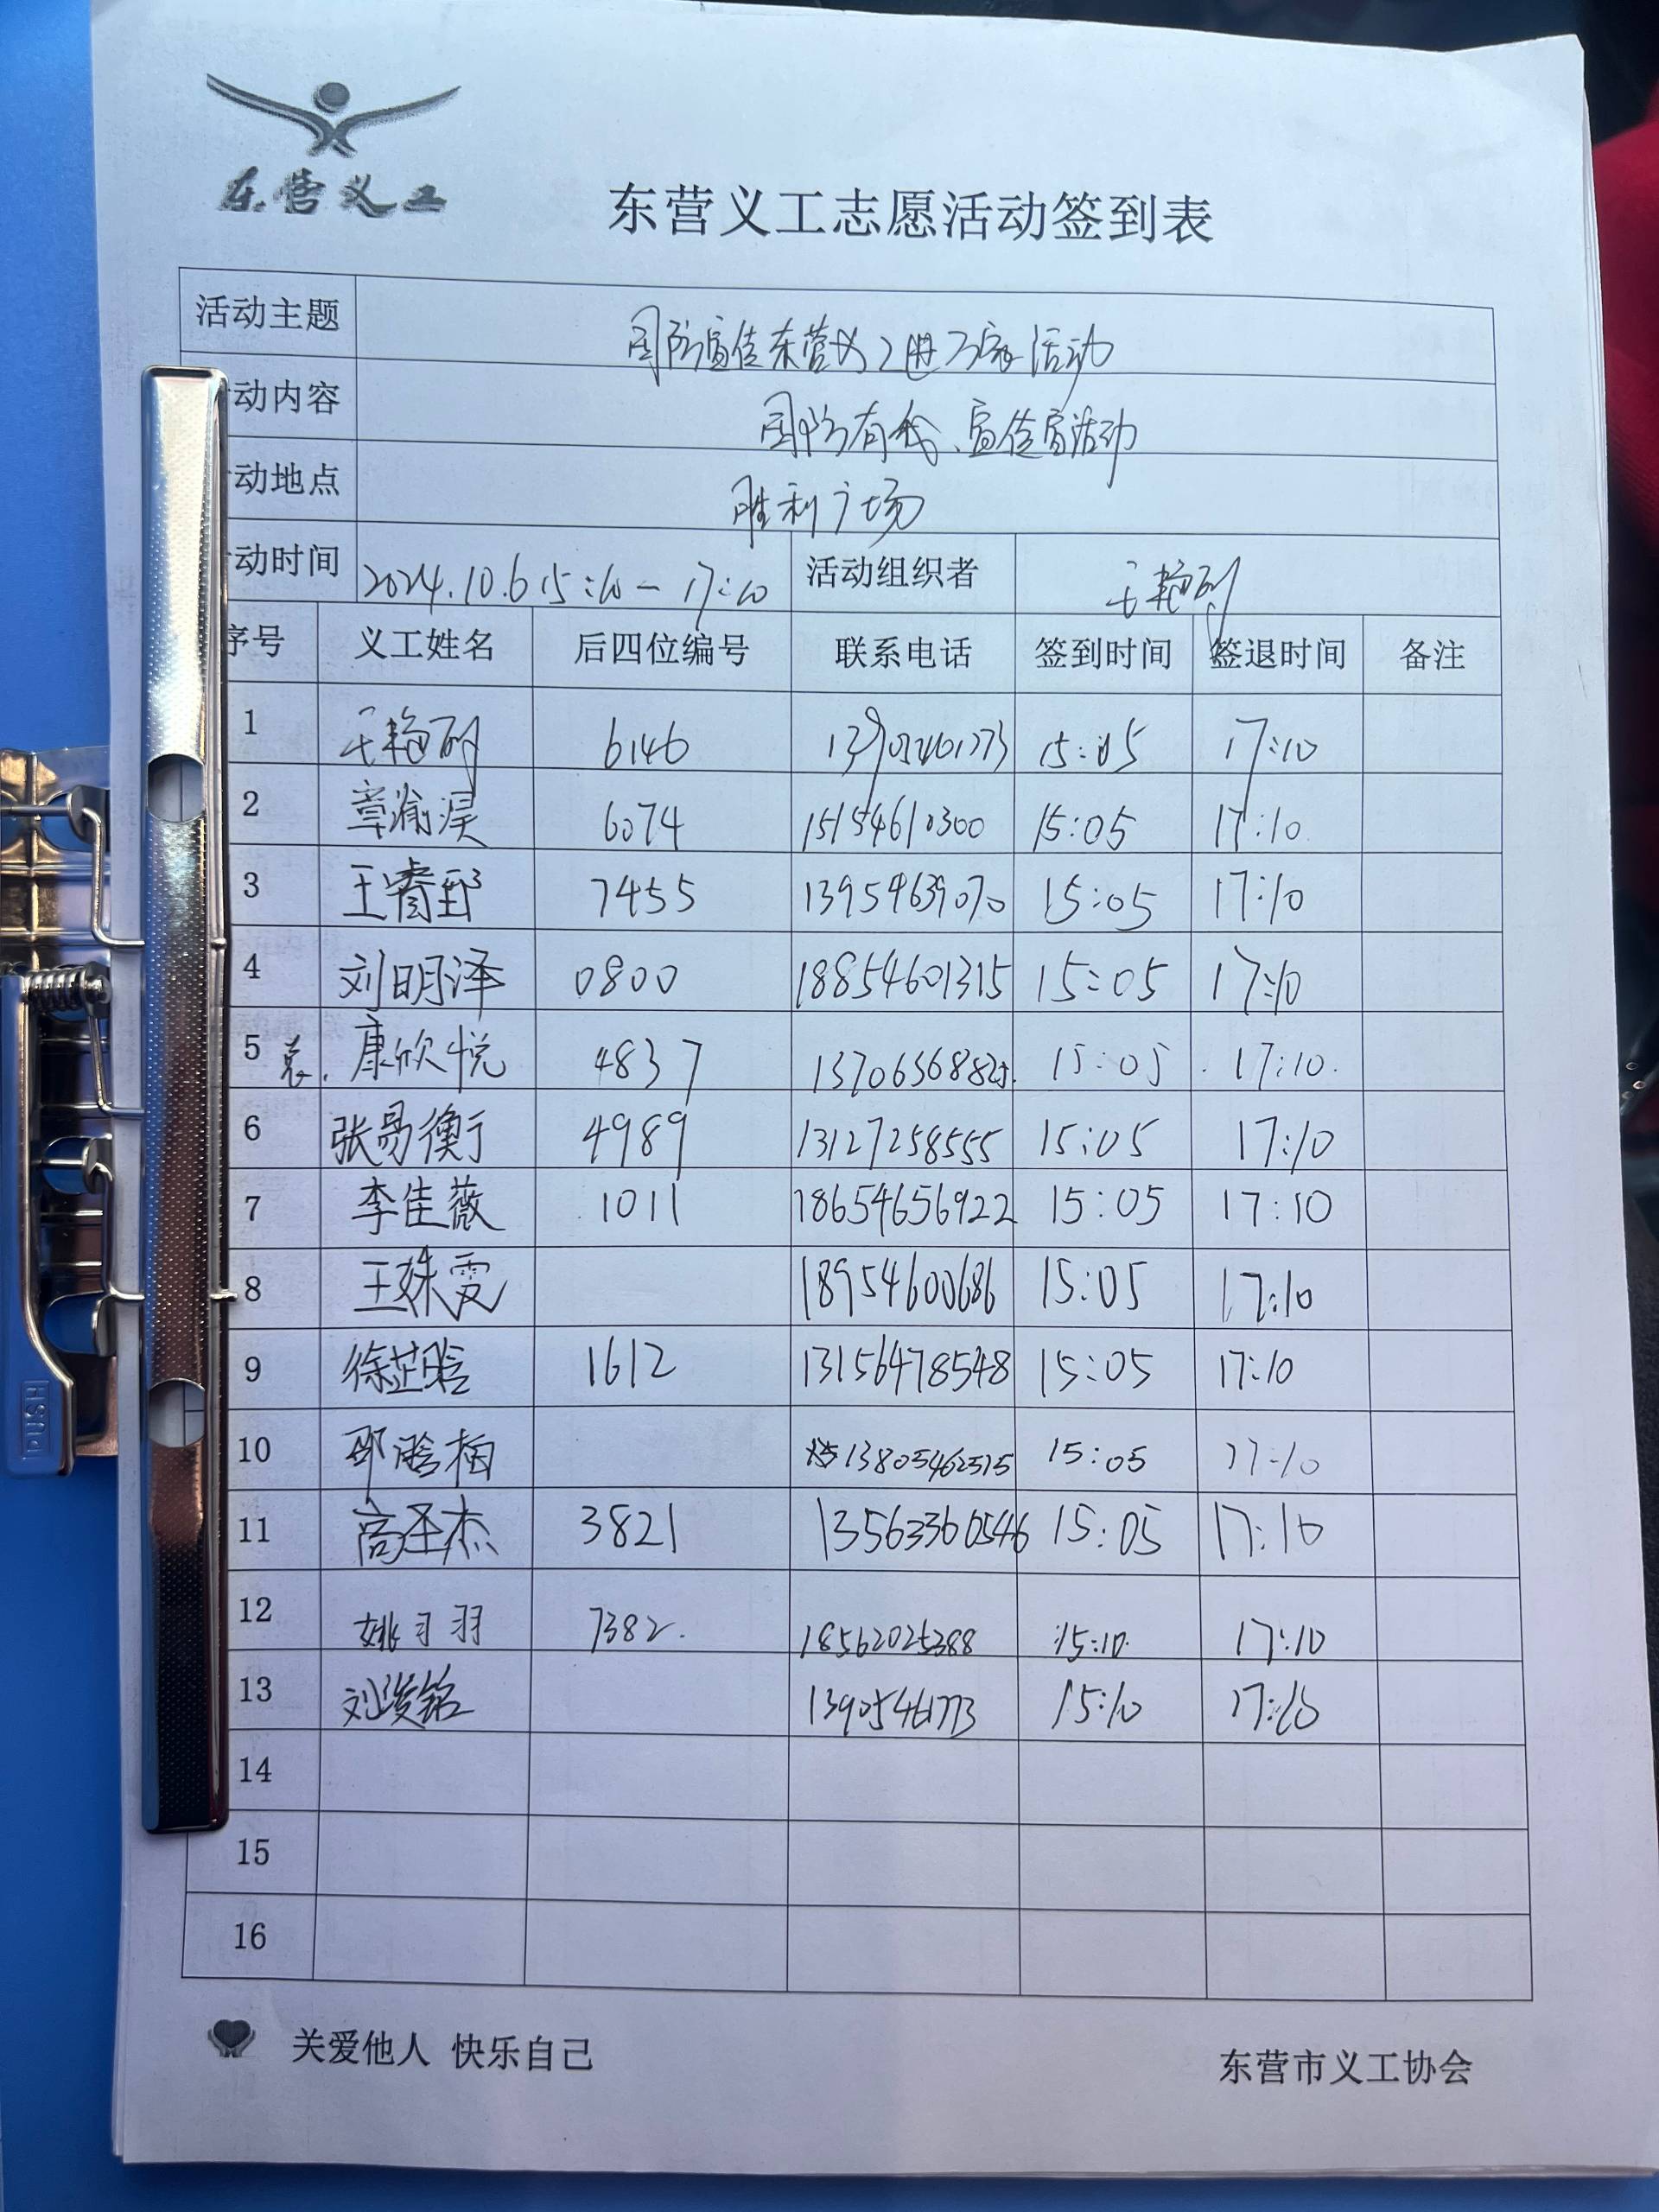 东营义工
东营义工志愿活动签到表
活动主题 国防宣传东营义工进万家活动
动内容 国防有我、宣传活动
动地点 胜利广场
动时间 2024.10.6 15:10-17:10 活动组织者 王艳丽
序号 义工姓名 后四位编号 联系电话 签到时间 签退时间 备注
1 王艳丽 6146 15:05 17:10
2 章渝淏 6074 15154610300 15:05 17:10
3 王睿 7455 13954639070 15:05 17:10
4 刘明泽 0800 18854601315 15:05 17:10
5 康欣悦 4837 15:05 17:10
6 张易衡 4989 13127258555 15:05 17:10
7 李佳薇 1011 18654656922 15:05 17:10
8 王姝雯 18954600686 15:05 17:10
9 徐芷晗 1612 13156478548 15:05 17:10
10 邵晗 13805462515 15:05 17:10
11 高圣杰 3821 13563360546 15:05 17:10
12 姚习羽 7382 18562025388 15:10 17:10
13 刘俊铭 13905461773 15:10 17:10
14
15
16
关爱他人 快乐自己
东营市义工协会
PUSH